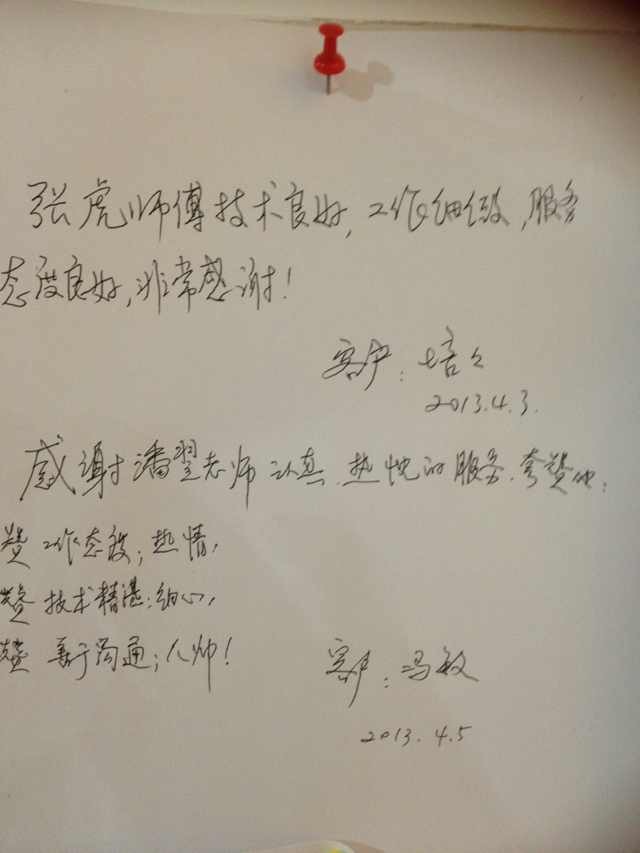 张虎师傅技术良好,工作细致,服务
态度良好,非常感谢!
客户:培
2013.4.3.
感谢潘翌老师认真、热忱的服务.夸赞他:
赞 工作态度;热情,
赞 技术精湛;细心,
赞 善于沟通;人帅!
客户:冯敏
2013.4.5